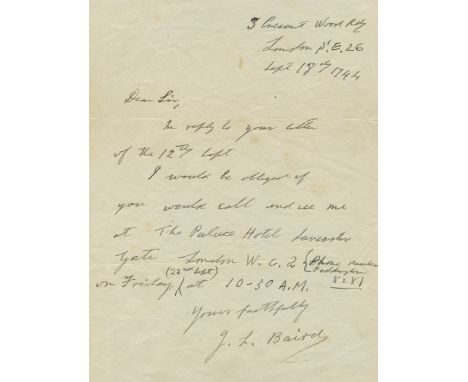 3 Crescent Wood Rd
London S.E. 26
Sept 18th 1944
Dear Sir,
In reply to your letter
of the 12th Sept
I would be obliged if
you would call and see me
at The Palace Hotel Lancaster
Gate London W.C. 2 (Phone Number Paddington 8281
on Friday (22nd Sept) at 10-30 A.M.
Yours faithfully
J. L. Baird